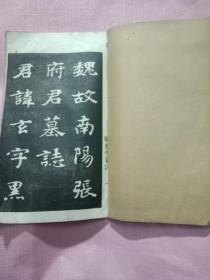 魏故南陽張
府君墓誌
君諱玄字黑